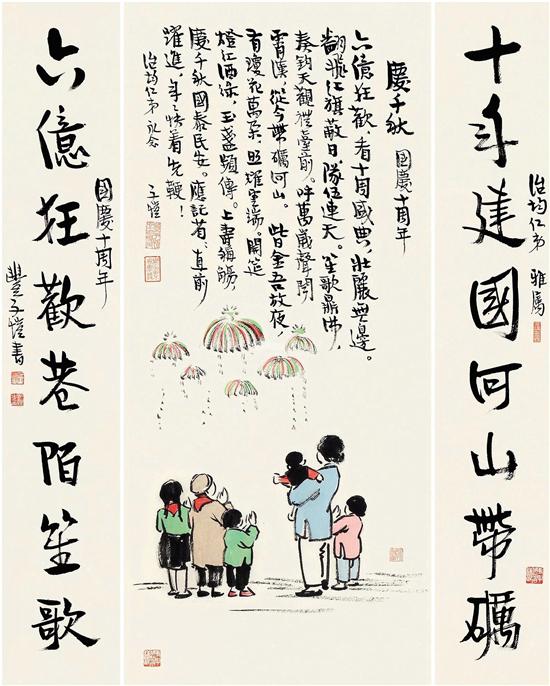 十年建國河山帶礪
治均仁弟 雅属
慶千秋 國慶十周年
六億狂歡,看十周盛典,壯麗無邊。
翻飛紅旗蔽日,隊伍連天。笙歌鼎沸,
奏鈞天觀禮臺前。呼萬歲聲聞
霄漢,從今帶礪河山。 此日金吾放夜,
有瓊花萬朵,照耀雲端。開筵
燈紅酒綠,玉盞頻傳。上壽稱觴,
慶千秋國泰民安。應記省,直前
躍進,年々快着先鞭!
治均仁弟永念 子愷
國慶十周年
六億狂歡巷陌笙歌
豐子愷書